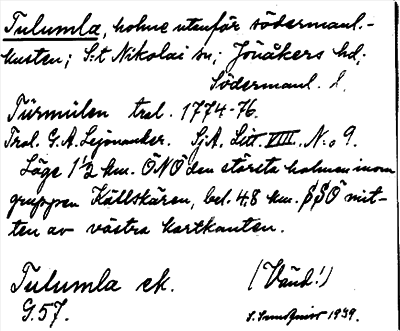 Tulumla, holme utenför södermanl.-
kusten; S:t Nikolai sn; Jönåkers hd;
Södermanl. l.
Türmulen tral. 1774-76.
Tral. G.A. Lejonanker. SjA, Litt. VIII, N:o 9.
Läge 1½ km. ÖNÖ den största holmen inom
gruppen Källskären, bel. 4.8 km. SSÖ mit-
ten av västra kartkanten.
Tulumla ek. (Vänd!)
G.57. 1939.